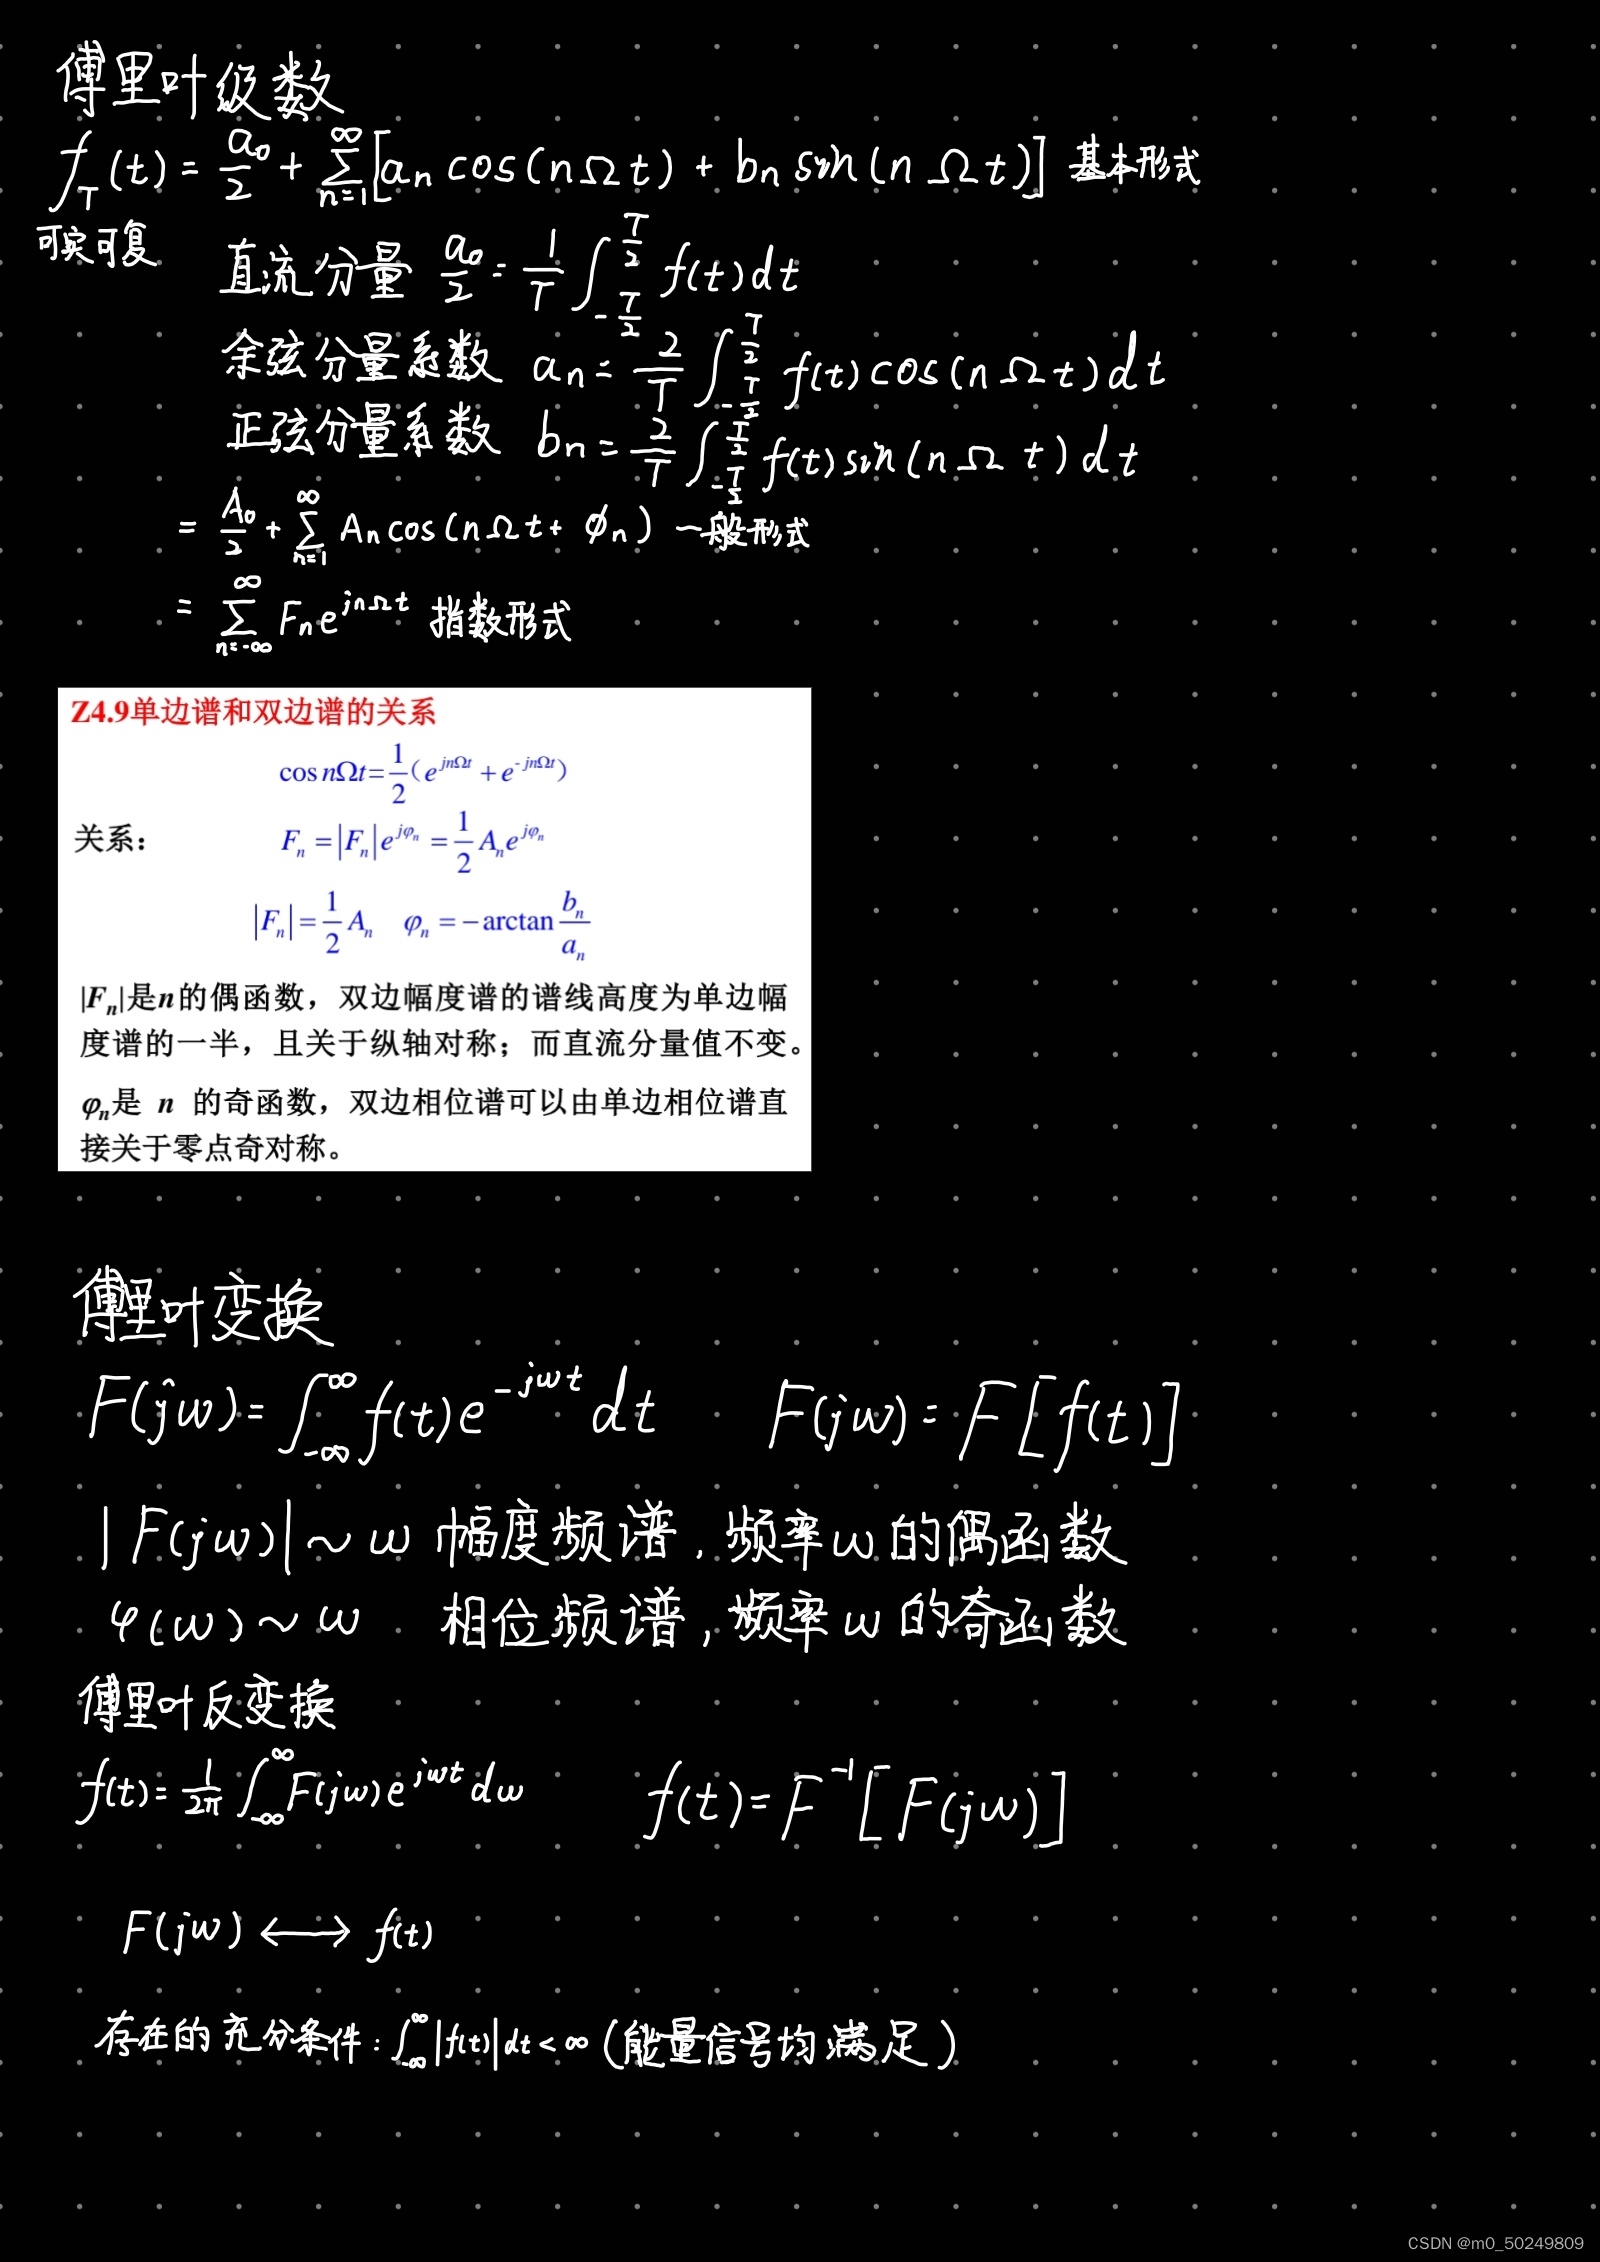 傅里叶级数
f_T(t) = a₀/2 + ∑_{n=1}^{∞} [aₙ cos(nΩt) + bₙ sin(nΩt)] 基本形式
可实可复
直流分量 a₀/2 = 1/T ∫_{-T/2}^{T/2} f(t)dt
余弦分量系数 aₙ = 2/T ∫_{-T/2}^{T/2} f(t)cos(nΩt)dt
正弦分量系数 bₙ = 2/T ∫_{-T/2}^{T/2} f(t)sin(nΩt)dt
= A₀/2 + ∑_{n=1}^{∞} Aₙcos(nΩt + ϕₙ) 一般形式
= ∑_{n=-∞}^{∞} Fₙe^{jnΩt} 指数形式
Z4.9单边谱和双边谱的关系
cos nΩt = 1/2 (e^{jnΩt} + e^{-jnΩt})
关系: Fₙ = |Fₙ|e^{jφₙ} = 1/2 Aₙe^{jφₙ}
|Fₙ| = 1/2 Aₙ φₙ = −arctan bₙ/aₙ
|Fₙ|是n的偶函数，双边幅度谱的谱线高度为单边幅
度谱的一半，且关于纵轴对称；而直流分量值不变。
φₙ是 n 的奇函数，双边相位谱可以由单边相位谱直
接关于零点奇对称。
傅里叶变换
F(jω) = ∫_{-∞}^{∞} f(t)e^{-jωt}dt F(jω) = F[f(t)]
|F(jω)|~ω 幅度频谱，频率ω的偶函数
φ(ω)~ω 相位频谱，频率ω的奇函数
傅里叶反变换
f(t) = 1/2π ∫_{-∞}^{∞} F(jω)e^{jωt}dω f(t) = F^{-1}[F(jω)]
F(jω) ⟷ f(t)
存在的充分条件: ∫_{-∞}^{∞} |f(t)|dt < ∞ (能量信号均满足)
CSDN @m0_50249809